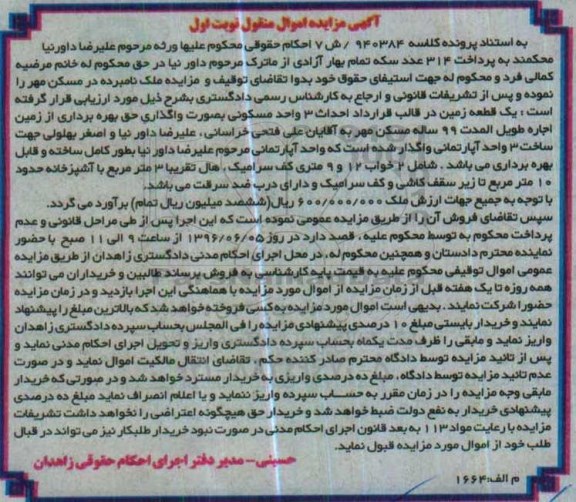 آگهی مزایده اموال منقول نوبت اول
به استناد پرونده کلاسه ۹۴۰۳۸۴ /ش ۷ احکام حقوقی محکوم علیها ورثه مرحوم علیرضا داورنیا
محکمند به پرداخت ۳۱۴ عدد سکه تمام بهار آزادی از ماترک مرحوم داور نیا در حق محکوم له خانم مرضیه
کمالی فرد و محکوم له جهت استیفای حقوق خود بدوا تقاضای توقیف و مزایده ملک نامبرده در مسکن مهر را
نموده و پس از تشریفات قانونی و ارجاع به کارشناس رسمی دادگستری بشرح ذیل مورد ارزیابی قرار گرفته
است : یک قطعه زمین در قالب قرارداد احداث ۳ واحد مسکونی بصورت واگذاری حق بهره برداری از زمین
اجاره طویل المدت ۹۹ ساله مسکن مهر به آقایان علی فتحی خراسانی ، علیرضا داور نیا و اصغر بهلولی جهت
ساخت ۳ واحد آپارتمانی واگذار شده است که واحد آپارتمانی مرحوم علیرضا داور نیا بطور کامل ساخته و قابل
بهره برداری می باشد . شامل ۲ خواب ۱۲ و ۹ متری کف سرامیک ، هال تقریبا ۳ متر مربع با آشپزخانه حدود
۱۰ متر مربع تا زیر سقف کاشی و کف سرامیک و دارای درب ضد سرقت می باشد.
با توجه به جمیع جهات ارزش ملک ۶۰۰/۰۰۰/۰۰۰ ریال(ششصد میلیون ریال تمام) برآورد می گردد.
سپس تقاضای فروش آن را از طریق مزایده عمومی نموده است که این اجرا پس از طی مراحل قانونی و عدم
پرداخت محکوم به توسط محکوم علیه ، قصد دارد در روز ۱۳۹۶/۰۶/۰۵ از ساعت ۹ الی ۱۱ صبح با حضور
نماینده محترم دادستان و همچنین محکوم له ، در محل اجرای احکام مدنی دادگستری زاهدان از طریق مزایده
عمومی اموال توقیفی محکوم علیه به قیمت پایه کارشناسی به فروش برساند طالبین و خریداران می توانند
همه روزه تا یک هفته قبل از زمان مزایده از اموال مورد مزایده با هماهنگی این اجرا بازدید و در زمان مزایده
حضورا شرکت نمایند . بدیهی است اموال مورد مزایده به کسی فروخته خواهد شد که بالاترین مبلغ را پیشنهاد
نمایند و خریدار بایستی مبلغ ۱۰ درصدی پیشنهادی مزایده را فی المجلس بحساب سپرده دادگستری زاهدان
واریز نماید و مابقی را ظرف مدت یکماه بحساب سپرده دادگستری واریز و تحویل اجرای احکام مدنی نماید و
پس از تائید مزایده توسط دادگاه محترم صادر کننده حکم ، تقاضای انتقال مالکیت اموال نماید و در صورت
عدم تائید مزایده توسط دادگاه ، مبلغ ده درصدی واریزی به خریدار مسترد خواهد شد و در صورتی که خریدار
مابقی وجه مزایده را در زمان مقرر به حساب سپرده واریز ننماید و یا اعلام انصراف نماید مبلغ ده درصدی
پیشنهادی خریدار به نفع دولت ضبط خواهد شد و خریدار حق هیچگونه اعتراضی را نخواهد داشت تشریفات
مزایده با رعایت مواد ۱۱۳ به بعد قانون اجرای احکام مدنی در صورت نبود خریدار طلبکار نیز می تواند در قبال
طلب خود از اموال مورد مزایده قبول نماید.
حسینی- مدیر دفتر اجرای احکام حقوقی زاهدان
م الف:۱۶۶۴